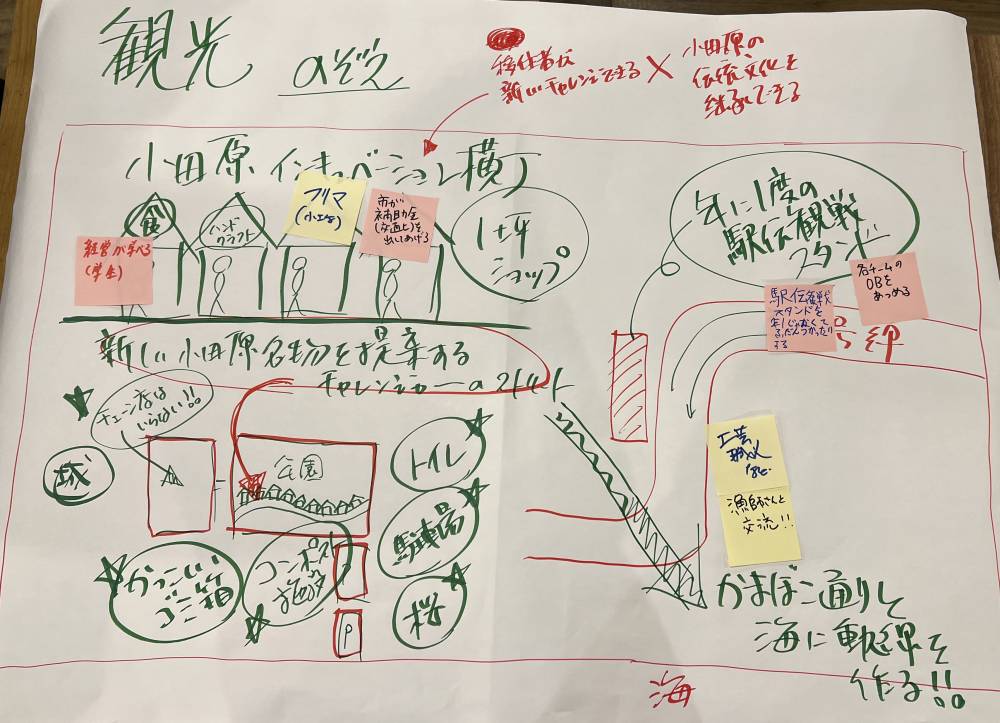 観光
aぞえ
移住者が
新しいチャレンジできる × 小田原の
伝統文化を
継承できる
小田原インキュベーション横丁
食
ハンド
クラフト
フリマ
(小工芸)
市が
補助金
(交通上)を
出してあげる
経営が学べる
(学生)
1坪
ショップ。
年に1度の
駅伝観戦
スタンド
駅伝観戦
スタンドを
各チームの
OBを
あつめる
新しい小田原名物を提案する
チャレンジャーのストリート
チェーン店は
いらない!!
城
公園
トイレ
駐車場
桜
かっこいい
ゴミ箱
コンポスト
P
工芸
職人
漁師さんと
交流!!
かまぼこ通りと
海に動線を
作る!!
海